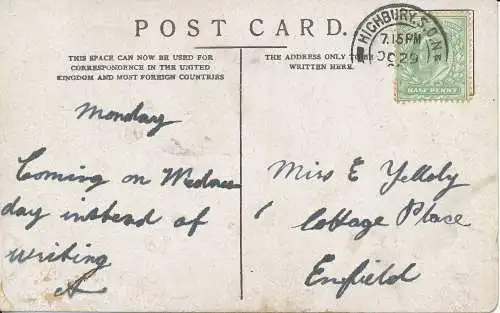 POST CARD.
THIS SPACE CAN NOW BE USED FOR
CORRESPONDENCE IN THE UNITED
KINGDOM AND MOST FOREIGN COUNTRIES
THE ADDRESS ONLY TO BE
WRITTEN HERE.
HIGHBURY.S.O.N
7.15PM
OC 29
HALF PENNY
Monday
Coming on Wednes
day instead of
writing
A
Miss E Yelloly
Cottage Place
Enfield